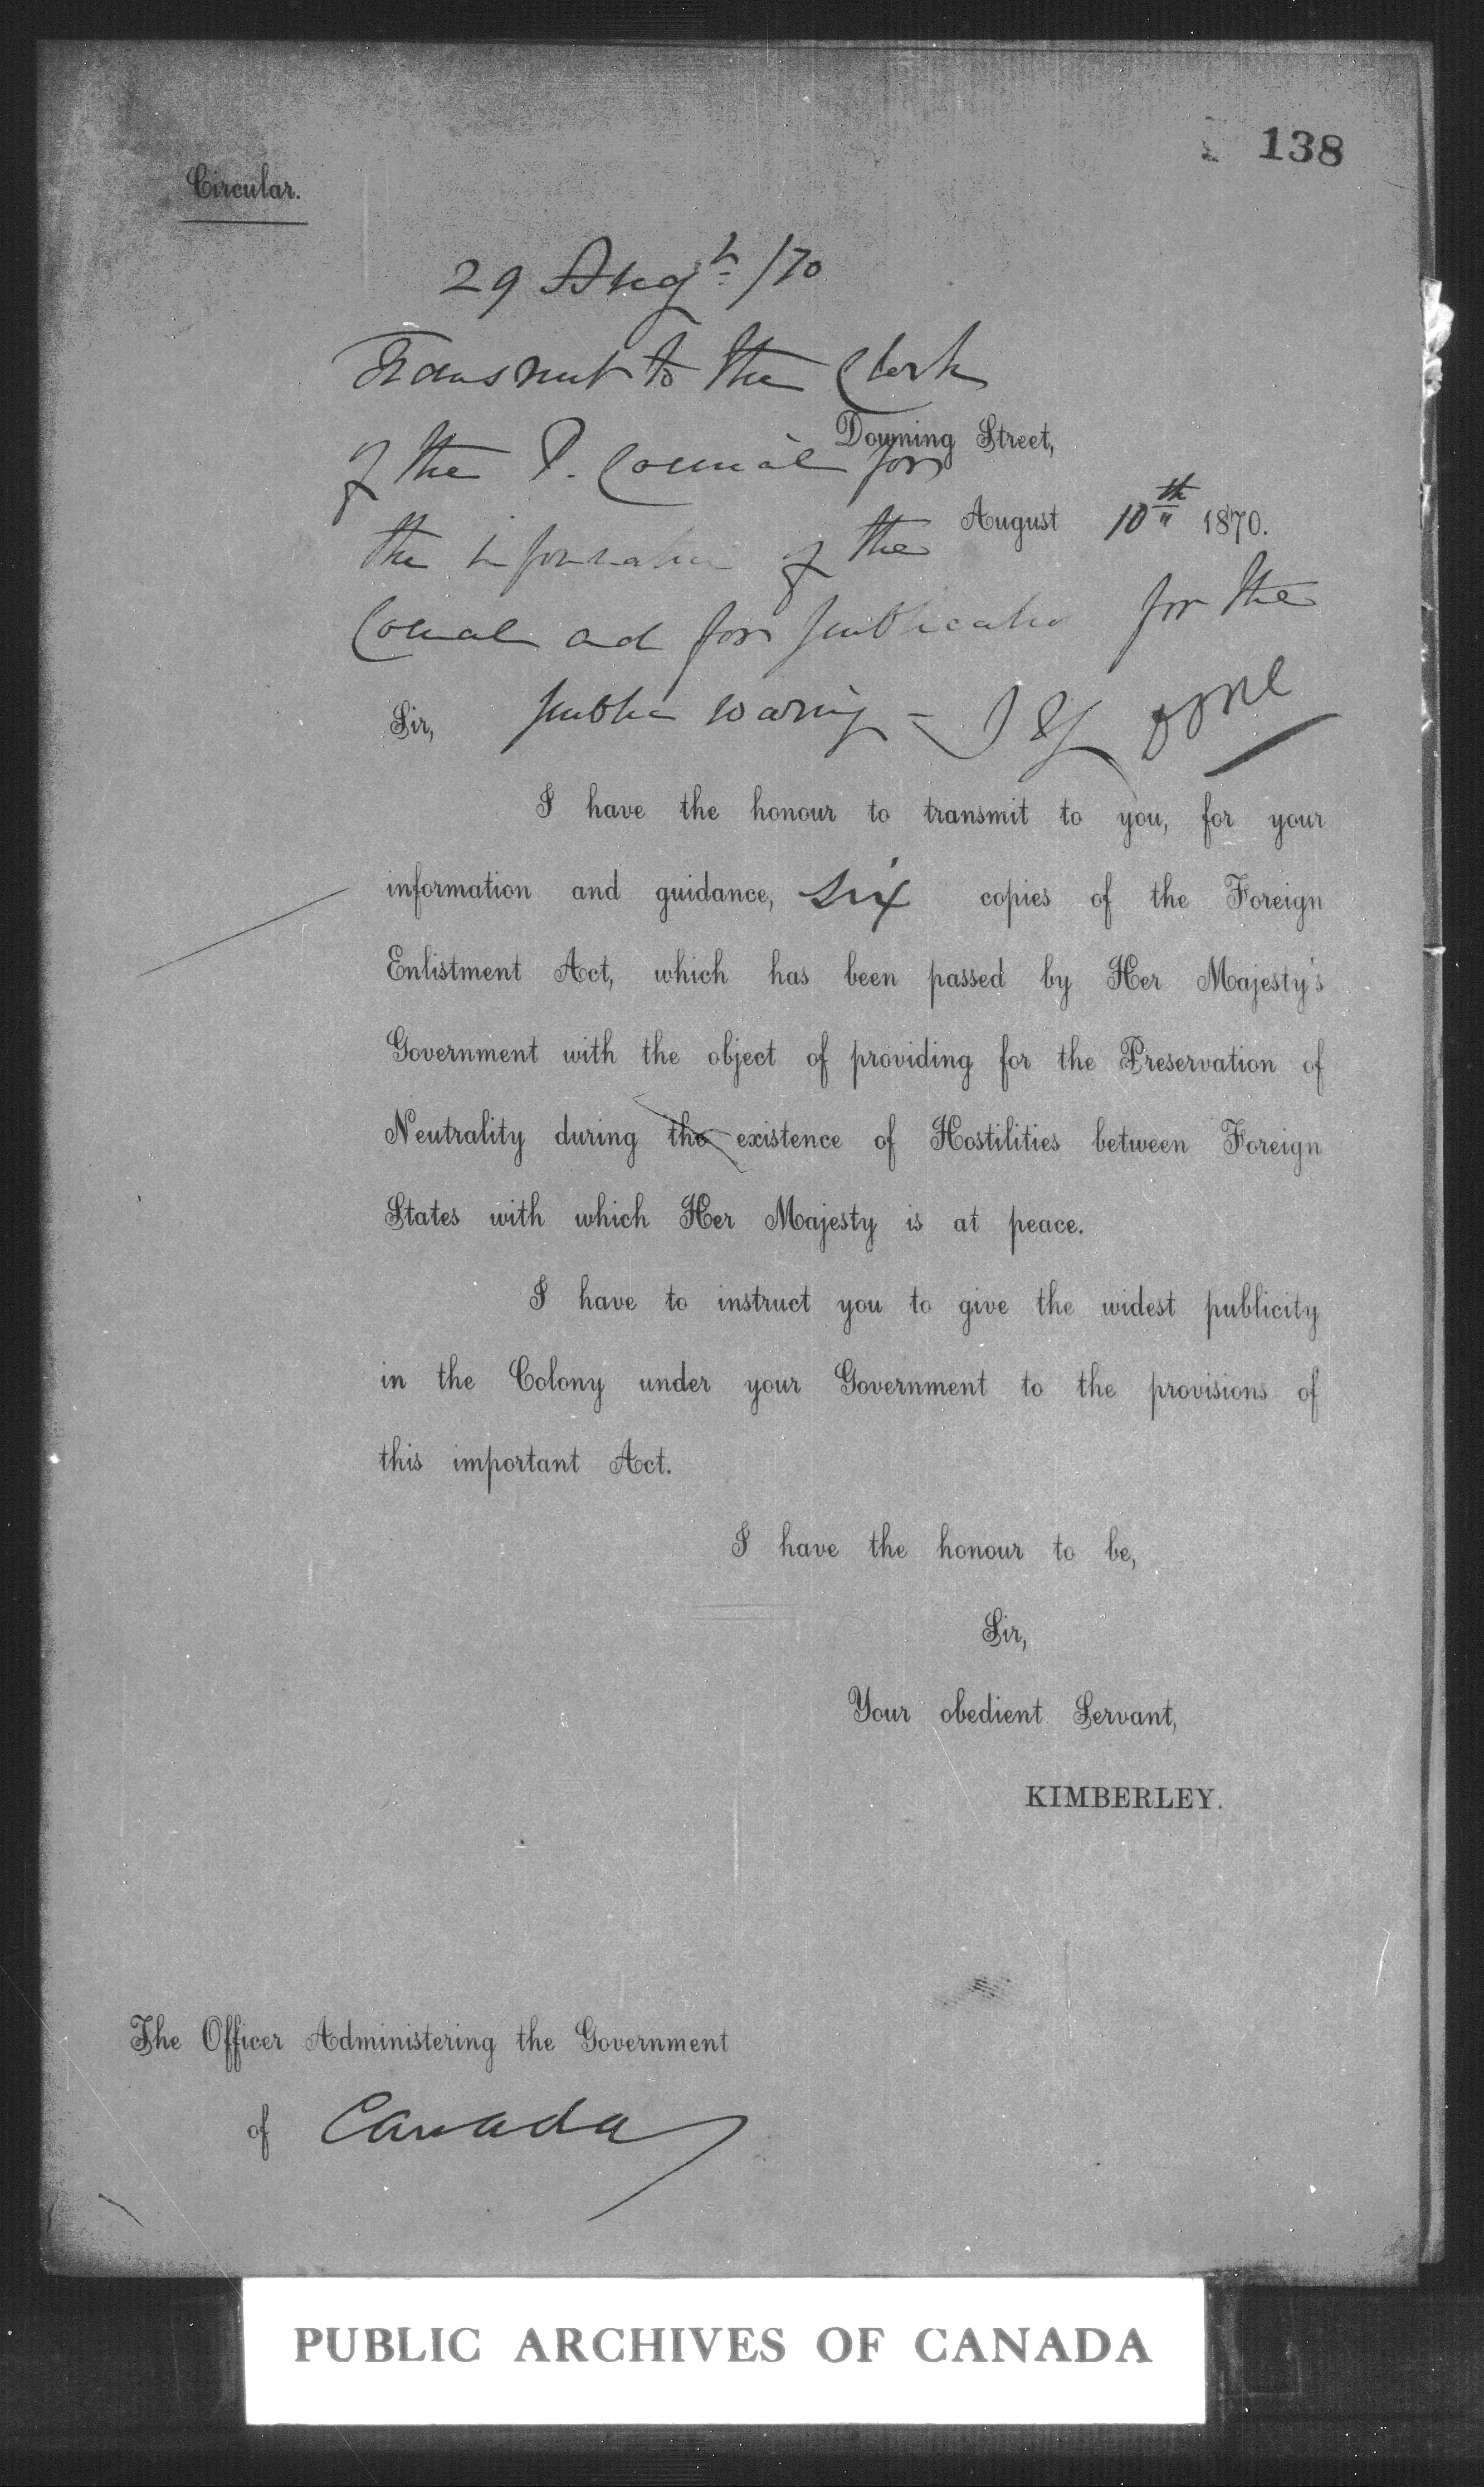 138
Circular.
29 Augt /70
Transmit to the Clerk
of the P. Council for
Downing Street,
the information of the
August 10th 1870.
Council and for publication for the
public waring -
Sir,
I have the honour to transmit to you, for your
information and guidance, six copies of the Foreign
Enlistment Act, which has been passed by Her Majesty's
Government with the object of providing for the Preservation of
Neutrality during the existence of Hostilities between Foreign
States with which Her Majesty is at peace.
I have to instruct you to give the widest publicity
in the Colony under your Government to the provisions of
this important Act.
I have the honour to be,
Sir,
Your obedient Servant,
KIMBERLEY.
The Officer Administering the Government
of Canada
PUBLIC ARCHIVES OF CANADA